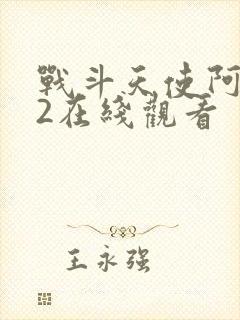 戰斗天使阿
2在綫觀看
王永强